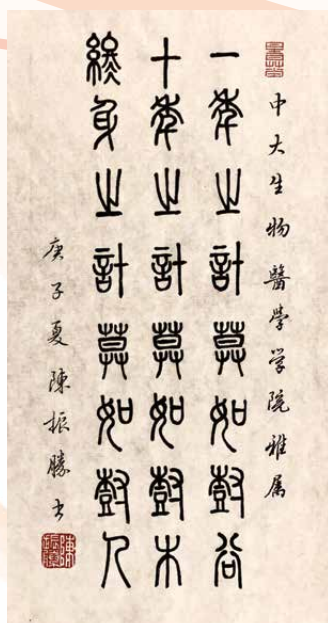 中大生物醫學学院雅属
一年之計莫如尌谷
十年之計莫如尌木
終身之計莫如尌人
庚子夏陳振勝书